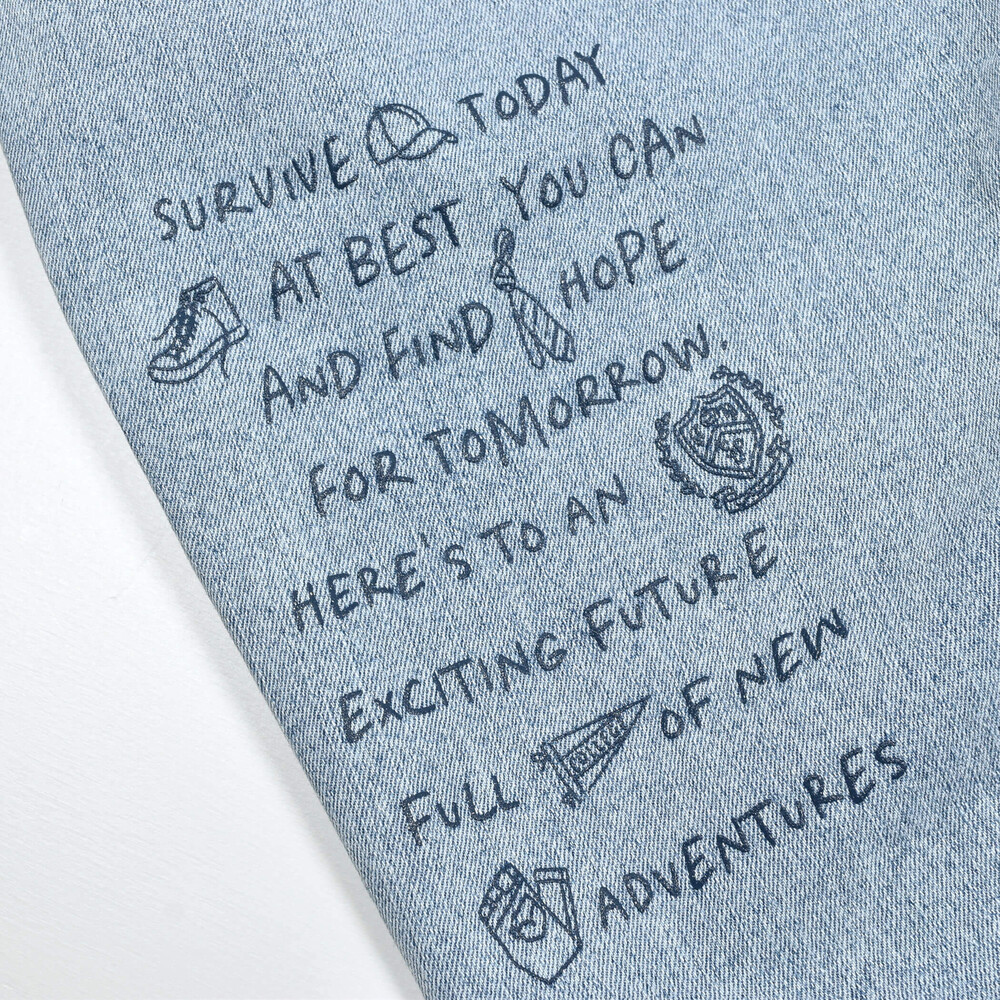 SURVIVE TODAY
AT BEST YOU CAN
AND FIND HOPE
FOR TOMORROW.
HERE'S TO AN
EXCITING FUTURE
FULL OF NEW
ADVENTURES